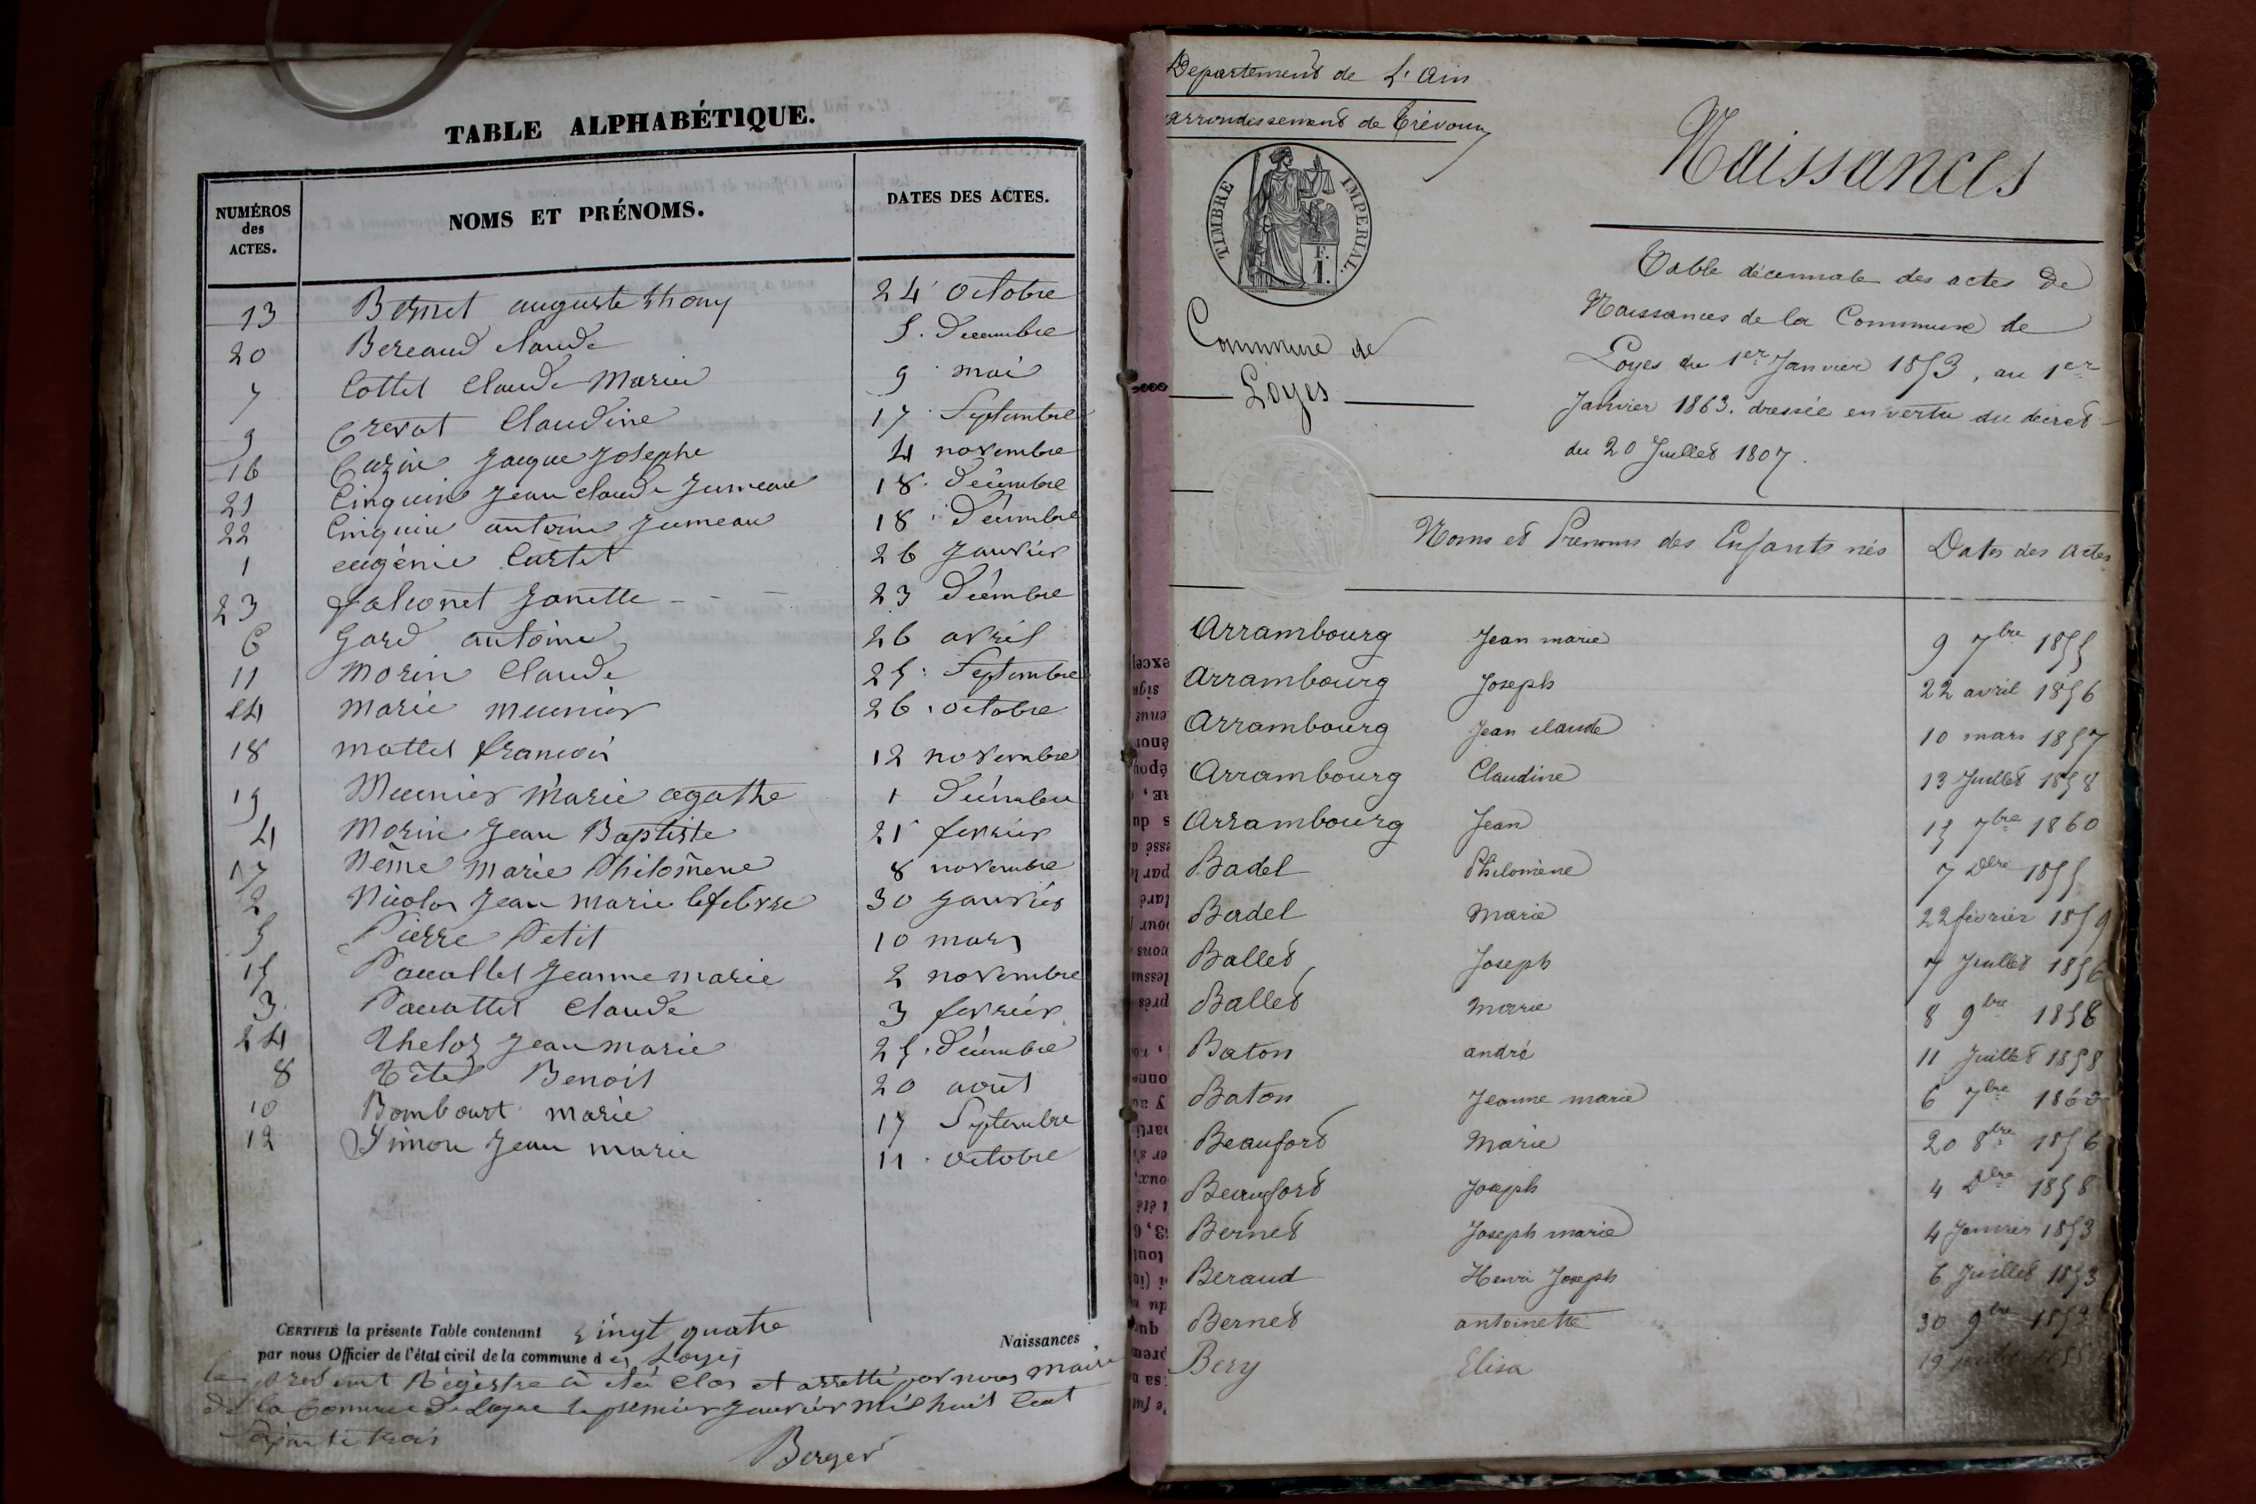 TABLE ALPHABÉTIQUE.
NUMÉROS des ACTES. NOMS ET PRÉNOMS. DATES DES ACTES.
13 Bernet auguste thony 24 octobre
20 Bereaud claude 5. decembre
7 Cottet Claude Marie 9 mai
9 Crevat Claudine 17 Septembre
16 Cuzin Jacque Josephe 4 novembre
21 Cinquin Jean claude Jumeau 18. decembre
22 Cinquin antoine Jumeau 18 decembre
1 eugénie Curtet 26 janvier
23 falconet Janette - - - 23 decembre
6 Gard antoine 26 avril
11 Morin Claude 25. Septembre
14 Marie meunier 26. octobre
18 mattet francois 12 novembre
19 Meunier Marie agathe 1 decembre
4 Morin Jean Baptiste 21 fevrier
17 Nême Marie Philomène 8 novembre
2 Nicolas Jean Marie lefebvre 30 janvier
5 Pierre Petit 10 mars
15 Jeanne marie 2 novembre
3. Claude 3 fevrier
24 Theloz Jean marie 25. decembre
8 Benoit 20 août
10 Bombourt marie 17 Septembre
12 Simon Jean marie 11. octobre
CERTIFIÉ la présente Table contenant vingt quatre Naissances
par nous Officier de l'état civil de la commune d e Loyes
le present Régistre à été clos et arretté par nous maire
de la Commune de Loyes le premier janvier mil huit Cent
soixante trois
Berger
Departement de L'Ain
arrondissement de Trévoux
TIMBRE IMPERIAL.
E. F.
Commune de
Loyes
Naissances
Table décennale des actes de
Naissances de la Commune de
Loyes du 1er Janvier 1853, au 1er
Janvier 1863. dressée en vertu du décret
du 20 Juillet 1807.
Noms et Prenoms des Enfants nés Dates des actes
Arrambourg Jean marie 9 7bre 1855
Arrambourg Joseph 22 avril 1856
Arrambourg Jean claude 10 mars 1857
Arrambourg Claudine 13 Juillet 1858
Arrambourg Jean 15 7bre 1860
Badel Philomène 7 Dbre 1855
Badel Marie 22 février 1859
Ballet Joseph 7 Juillet 1856
Ballet Marie 8 9bre 1858
Baton andré 11 Juillet 1858
Baton Jeanne marie 6 7bre 1860
Beaufort Marie 20 8bre 1856
Beaufort Joseph 4 Dbre 1858
Bernet Joseph marie 4 Janvier 1853
Beraud Henri Joseph 6 Juillet 1853
Bernet antoinette 30 9bre 1854
Bery Elisa 19